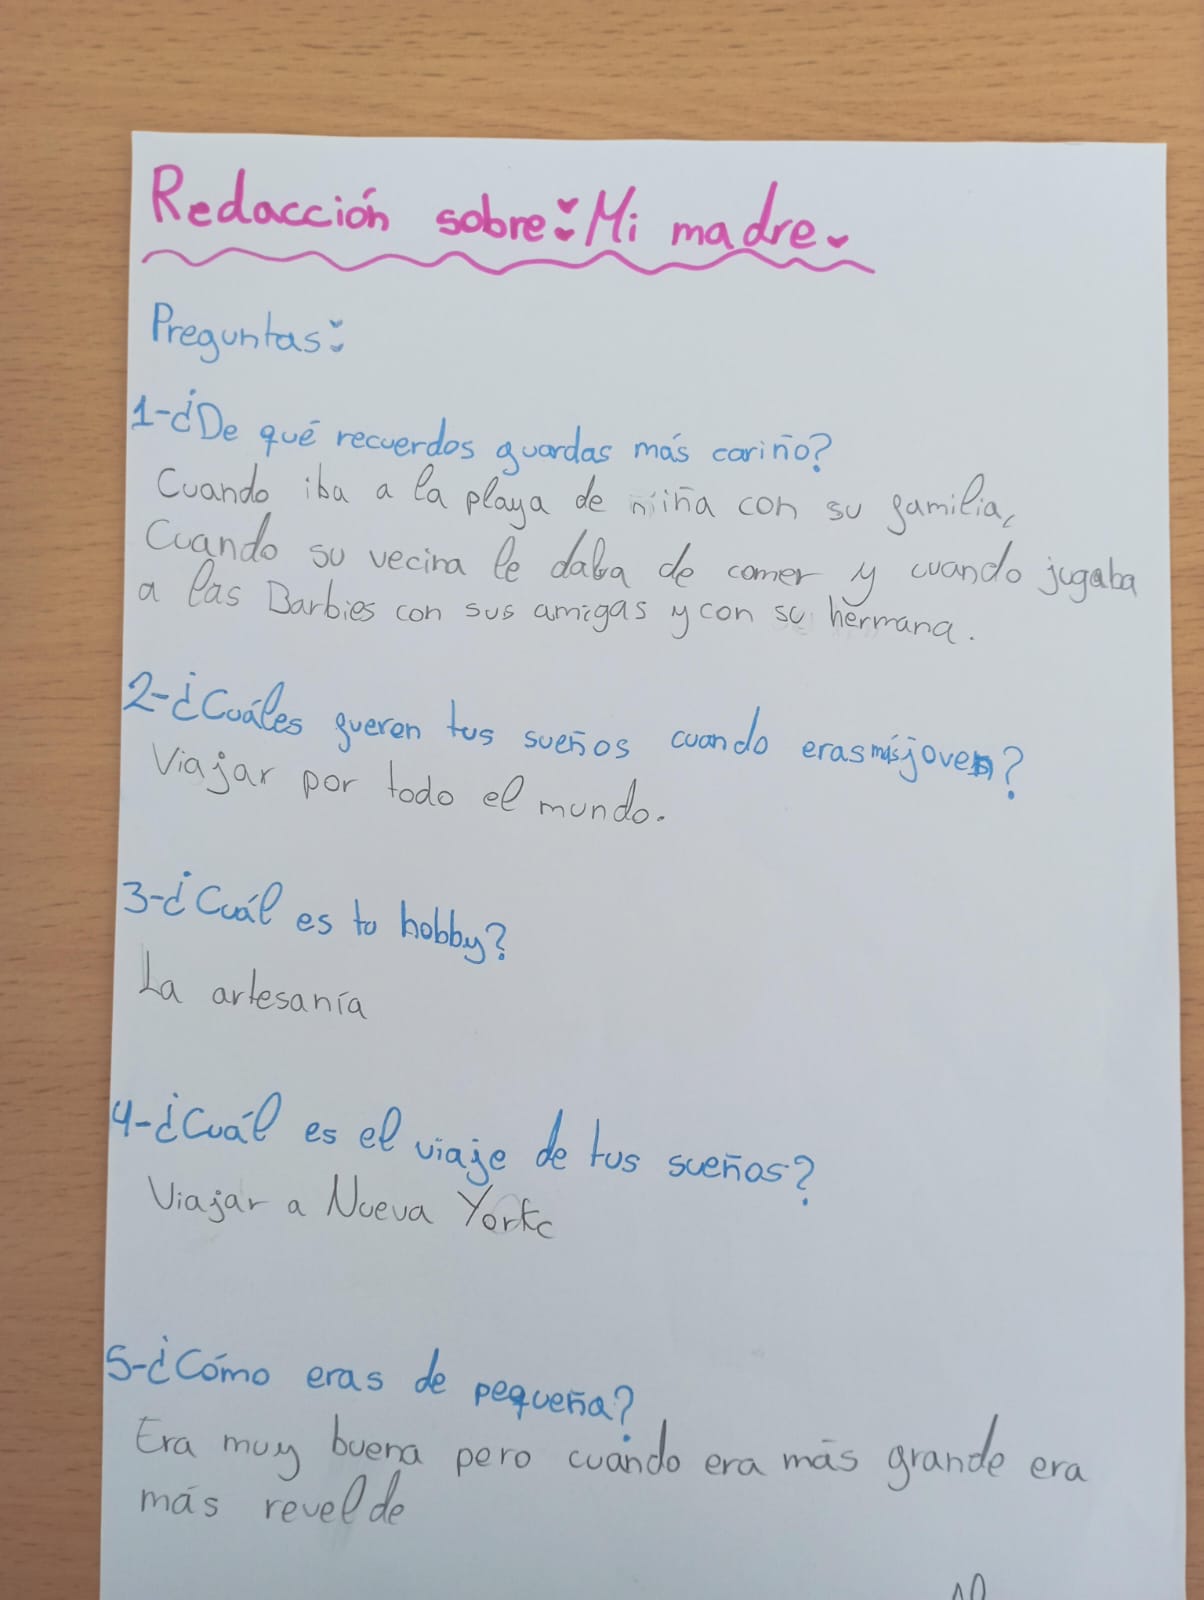 Redacción sobre: Mi madre.
Preguntas:
1-¿De qué recuerdos guardas más cariño?
Cuando iba a la playa de niña con su familia,
Cuando su vecina le daba de comer y cuando jugaba
a las Barbies con sus amigas y con su hermana.
2-¿Cuáles fueron tus sueños cuando eras más joven?
Viajar por todo el mundo.
3-¿Cuál es tu hobby?
La artesanía
4-¿Cuál es el viaje de tus sueños?
Viajar a Nueva York
5-¿Cómo eras de pequeña?
Era muy buena pero cuando era más grande era
más revelde